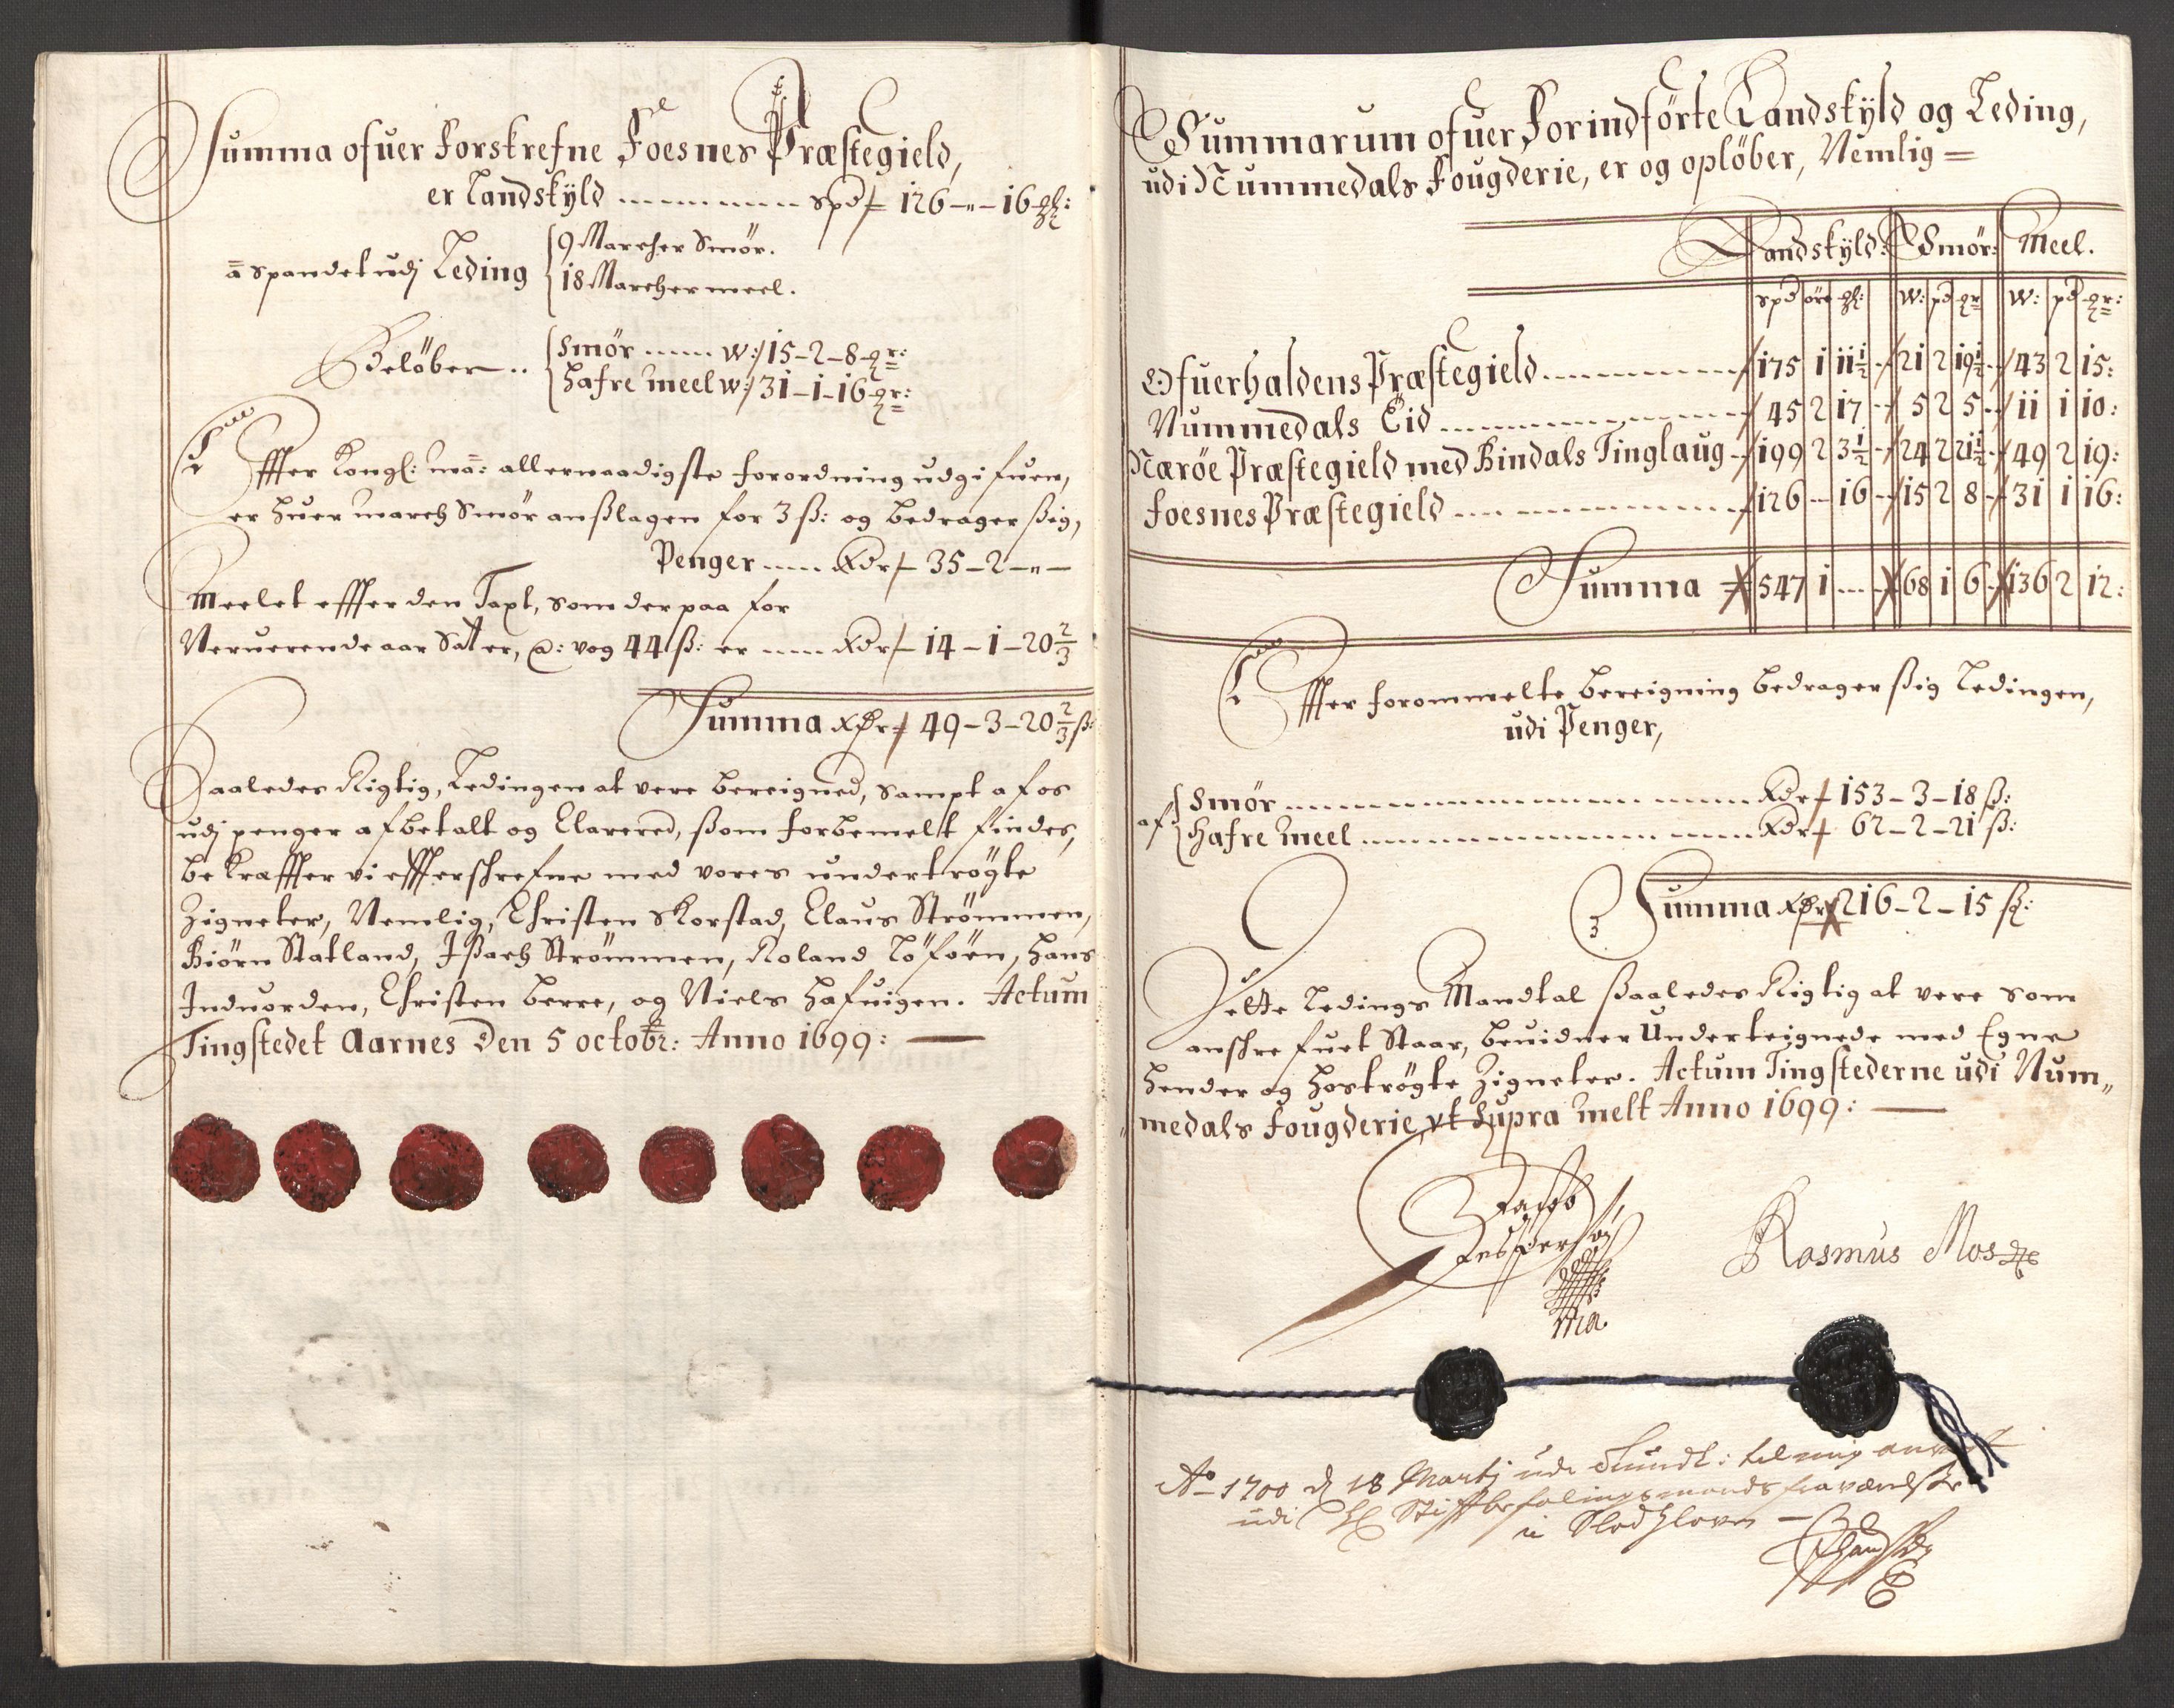 Summa ofuer Forskrefne Foesnes Præstegield,
er Landskÿld ---------- spd 126-"-16 ꝗl:
a spandet udj Leding { 9 Marcher Smör.
18 Marcher meel.
Belöber .. { Smör ---- W: 15-2-8 ꝗr:
Hafre meel W: 31-1-16 ꝗr:
Effter Kongl: ma: allernaadigste forordning udgifuen,
er huer march Smör anslagen for 3 ß: og bedrager ßig,
Penger ---- Rdr 35-2-"-
Meelet effter den Taxt, som der paa for
Neruerende aar Sat er, a: vog 44 ß: er ---- Rdr 14-1-20 2/3
Summa Rdr 49-3-20 2/3 ß:
Saaledes Rigtig, Ledingen at vere bereigned, sampt af os
udj penger afbetalt og Clarered, ßom forbemelt findes,
bekræffter vi effterschrefne med vores undertrögte
Zigneter, Nemlig, Christen Skorstad, Claus Strömmen,
Biörn Statland, Jßach Strömmen, Roland Löföen, Hans
Induorden, Christen Berre, og Niels Hafuigen. Actum
Tingstedet Aarnes Den 5 octobr: Anno 1699:
Summarum ofuer Forindförte Landskÿld og Leding,
udi Nummedals Fougderie, er og oplöber, Nemlig =
Landskÿld: Smör: Meel.
spd öre ꝗl: W: pd ꝗr W: pd ꝗr:
Ofuerhaldens Præstegield ---------- 175 1 11 1/2 - 21 2 19 1/2 - 43 2 15:
Nummedals Eid ---------- 45 2 17 - 5 2 5 - 11 1 10:
Næröe Præstegield med Bindals Tinglaug - 199 2 3 1/2 - 24 2 21 1/2 - 49 2 19:
Foesnes Præstegield ---------- 126 - 16 - 15 2 8 - 31 1 16:
Summa 547 1 --- 68 1 6 - 136 2 12:
Effter forommelte bereigning bedrager ßig Ledingen,
udi Penger,
af { Smör ---------- Rdr 153-3-18 ß:
Hafre Meel ---------- Rdr 62-2-21 ß:
Summa Rdr 216-2-15 ß:
Dette Ledings Mandtal ßaaledes Rigtig at vere som
anschrefuet Staar, beuidner Underteignede med Egne
Hender og hoströgte Zigneter. Actum Tingstederne udi Num„
„medals Fougderie, vt supra melt Anno 1699:
Jacob
Jespersøn
ma
Rasmus Mos
Ao 1700 d 18 Martj udi Trundh: til mig
udi Hl Stiftbefalingsmands fraværelse
i Slodzloven